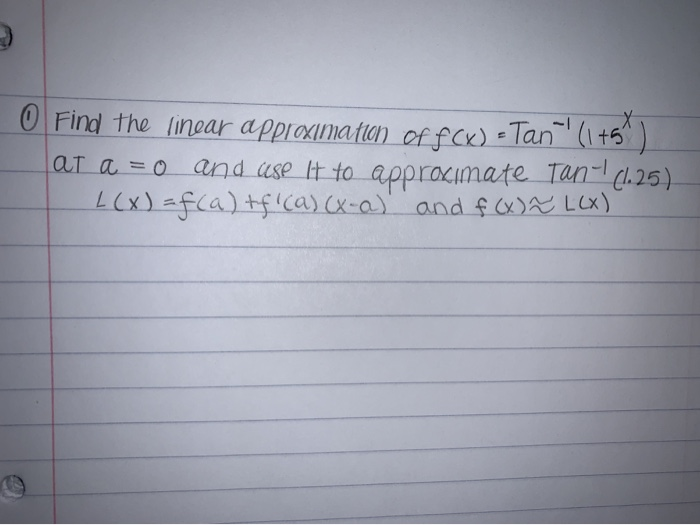 ① Find the linear approximation of f(x) = Tan⁻¹ (1+5ˣ)
at a = 0 and use it to approximate Tan⁻¹ (1.25)
L(x) = f(a) + f'(a) (x-a) and f(x) ≈ L(x)